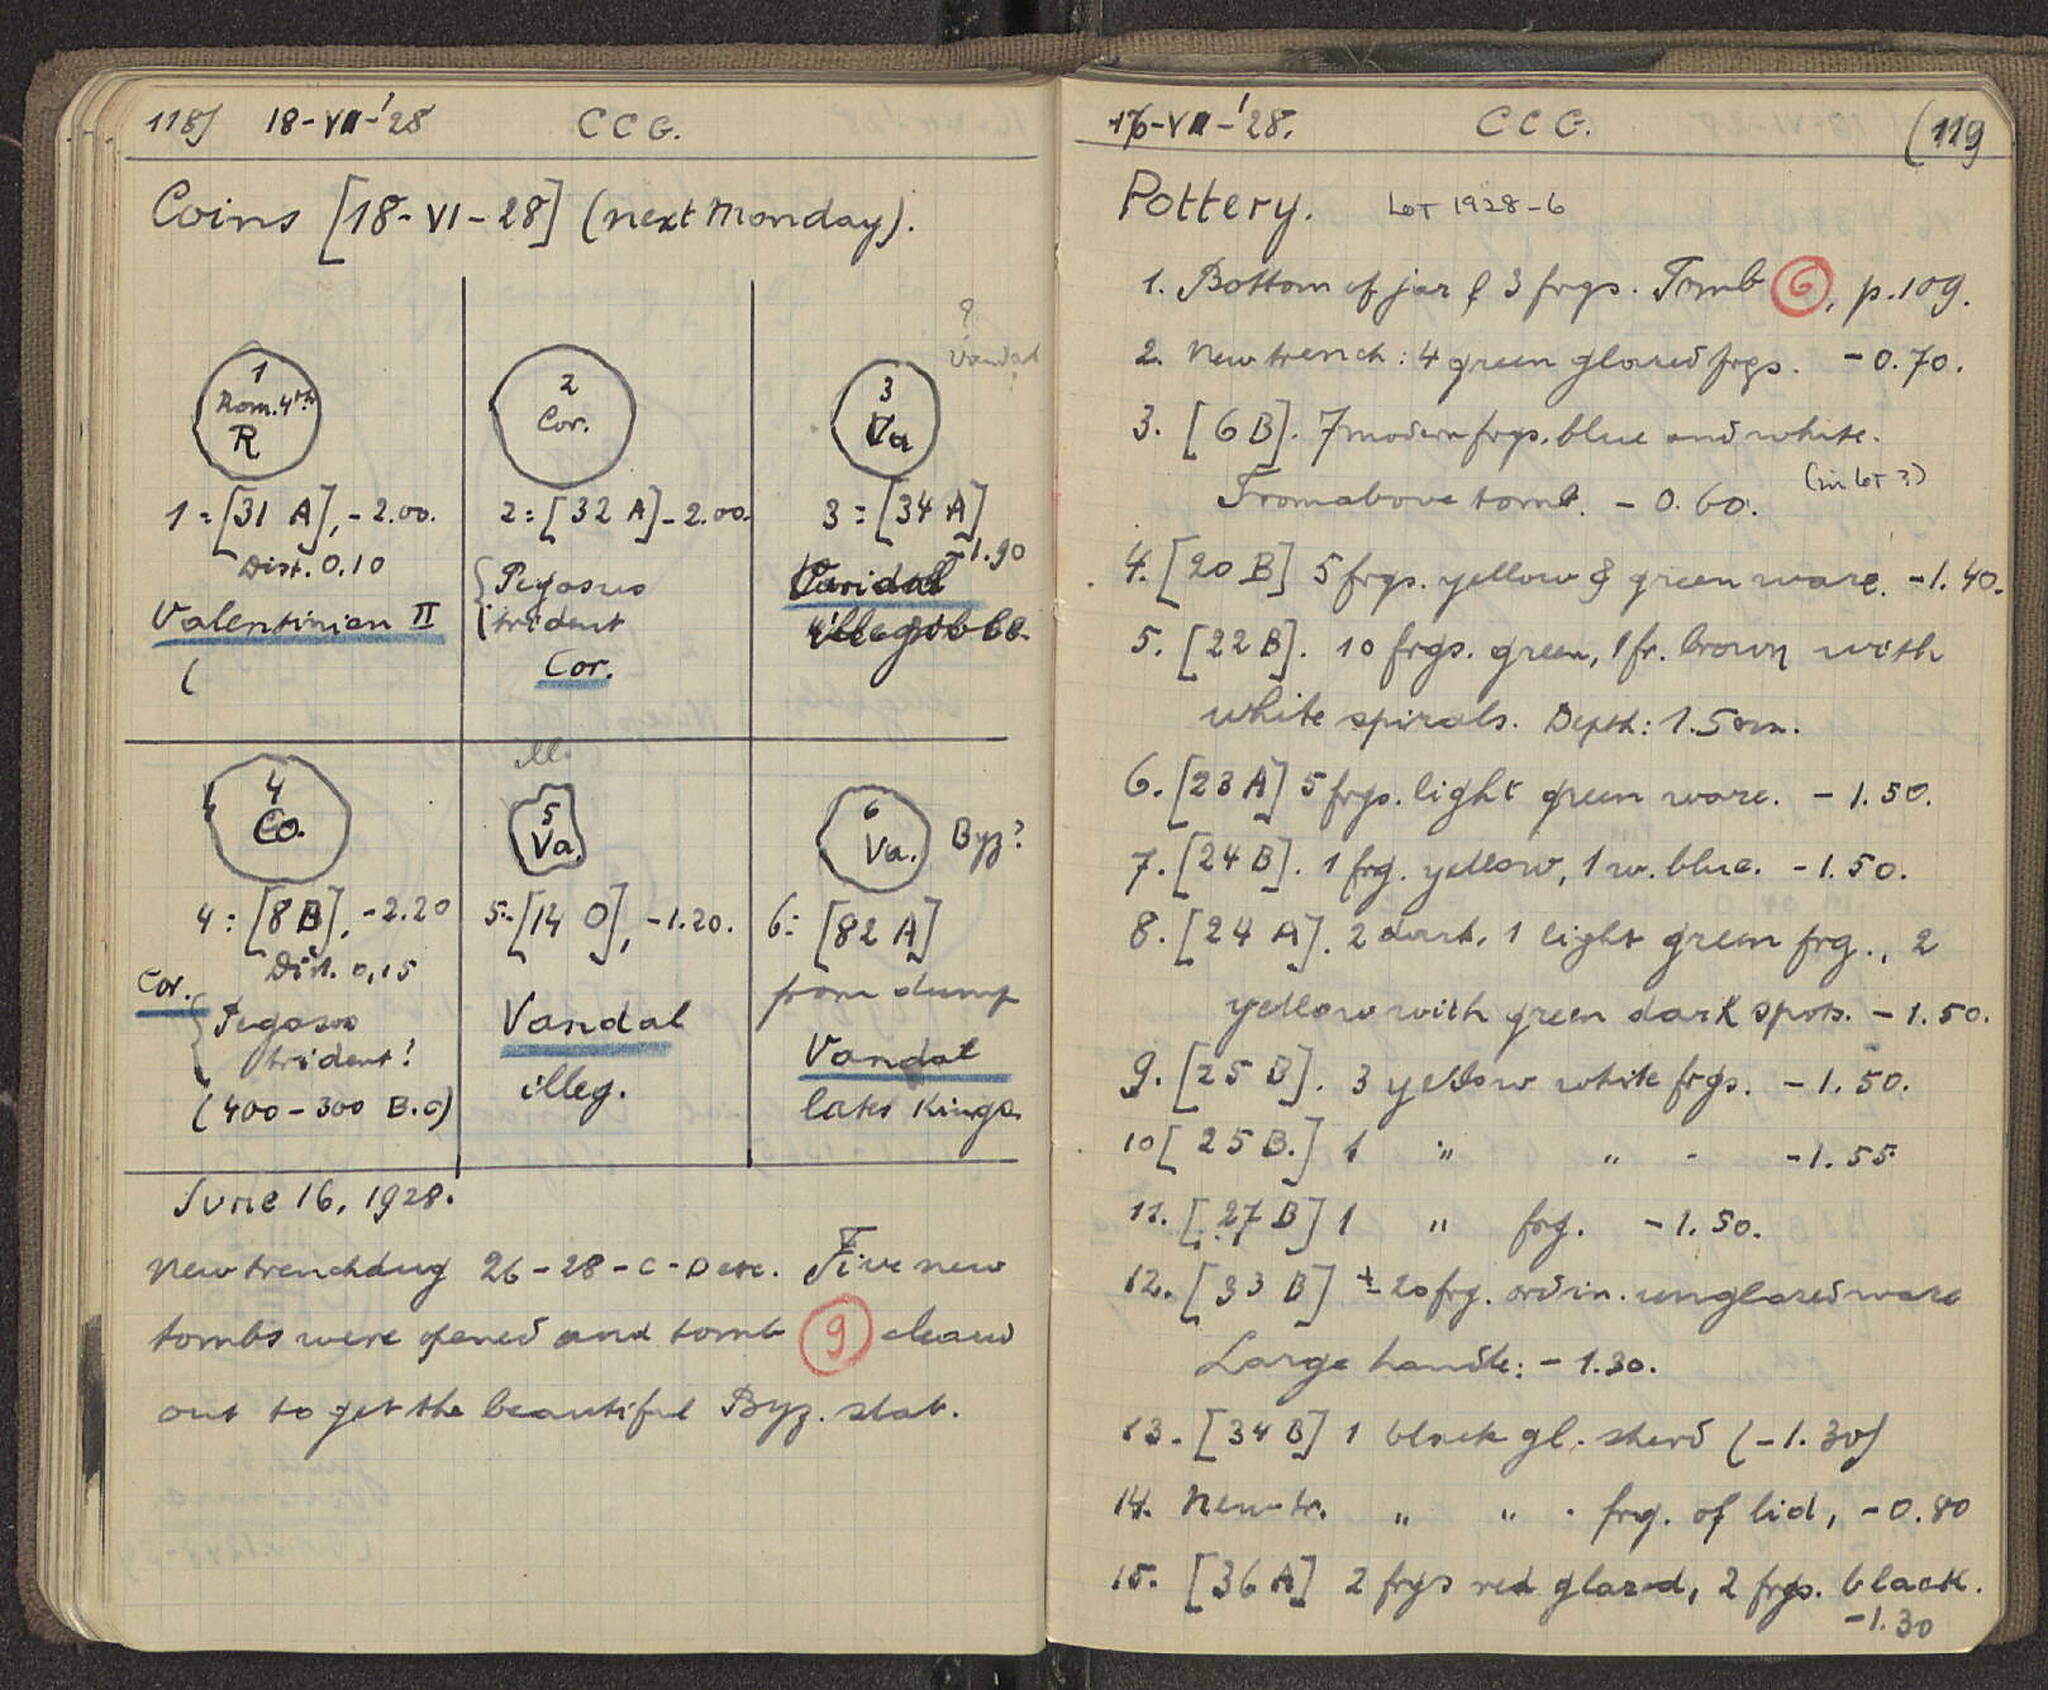 118) 18-VII-'28 CCG.
Coins [18-VI-28] (next Monday).
1
Rom. 4th
R
1 = [31 A], -2.00.
Dist. 0.10
Valentinian II
(
2
Cor.
2 = [32 A] -2.00.
Pegasus
trident
Cor.
?
Vandal
3
Va
3 = [34 A]
-1.90
Vandal
illegible.
4
Co.
4 = [8 B], -2.20
Dist. 0,15
Cor.
Pegasus
trident!
(400-300 B.C)
ill.
5
Va.
5 = [14 O], -1.20.
Vandal
illeg.
6
Va.
Byz?
6 = [82 A]
from dump
Vandal
later Kings.
June 16, 1928.
New trench dug 26-28-C-D etc. Five new
tombs were opened and tomb 9 cleaned
out to get the beautiful Byz. slab.
16-VII-'28. CCG. (119
Pottery. Lot 1928-6
1. Bottom of jar & 3 frgs. Tomb 6, p.109.
2. New trench: 4 green glazed frgs. -0.70.
3. [6 B]. 7 modern frgs. blue and white.
From above tomb. -0.60. (in lot ?)
4. [20 B] 5 frgs. yellow & green ware. -1.40.
5. [22 B]. 10 frgs. green, 1 fr. brown with
white spirals. Depth: 1.50m.
6. [23 A] 5 frgs. light green ware. -1.50.
7. [24 B]. 1 frg. yellow, 1 w. blue. -1.50.
8. [24 A]. 2 dark, 1 light green frg., 2
yellow with green dark spots. -1.50.
9. [25 B]. 3 yellow white frgs. -1.50.
10 [25 B.] 1 " " - -1.55
11. [27 B] 1 " frg. -1.50.
12. [33 B] ± 20 frg. ordin. unglazed ware
Large handle: -1.30.
13. [34 B] 1 black gl. sherd (-1.30)
14. New tr. " " . frg. of lid, -0.80
15. [36 A] 2 frgs red glazed, 2 frgs. black.
-1.30